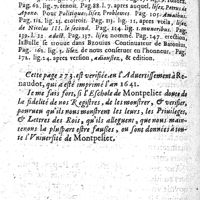 Pag. 62. lig. 7. tenent. Pag. 88. l. 7. apres aucuel, lisez, Petrus de
Apono. Pour Politiques, lisez Problemes. Pag. 105. Amatbus.
Pag. 112. lig. 4. croisiets. Pag. 113. en apres, apres bissez, lisez,
de Nicolas III. le second. pag. 114. lig. 1. muneribus. Pag.
139. l. 22. adest. Pag. 137. lisez nommé. Pag. 147. erection,
la Bulle se trouue dans Rzouius Continuateur de Baronius.
Pag. 162. lig. 5. lisez de nous conseruer en l'honneur. Pag.
272. lig. 24. apres version, adioustez, & edition.
Cette page 273. est verifiée en l'Aduertissement à Re-
naudot, qui a esté imprimé l'an 1641.
Ie me fais fors, si l'Eschole de Montpelier doute de
la fidelité de nos Registres, de les monstrer, & verifier,
pourueu qu'ils nous monstrent les leurs, les Priuileges,
& Lettres des Rois, qu'ils alleguent, que nous main-
tenons la pluspart estre fausses, ou sont données à tou-
te l'Vniuersité de Montpelier.